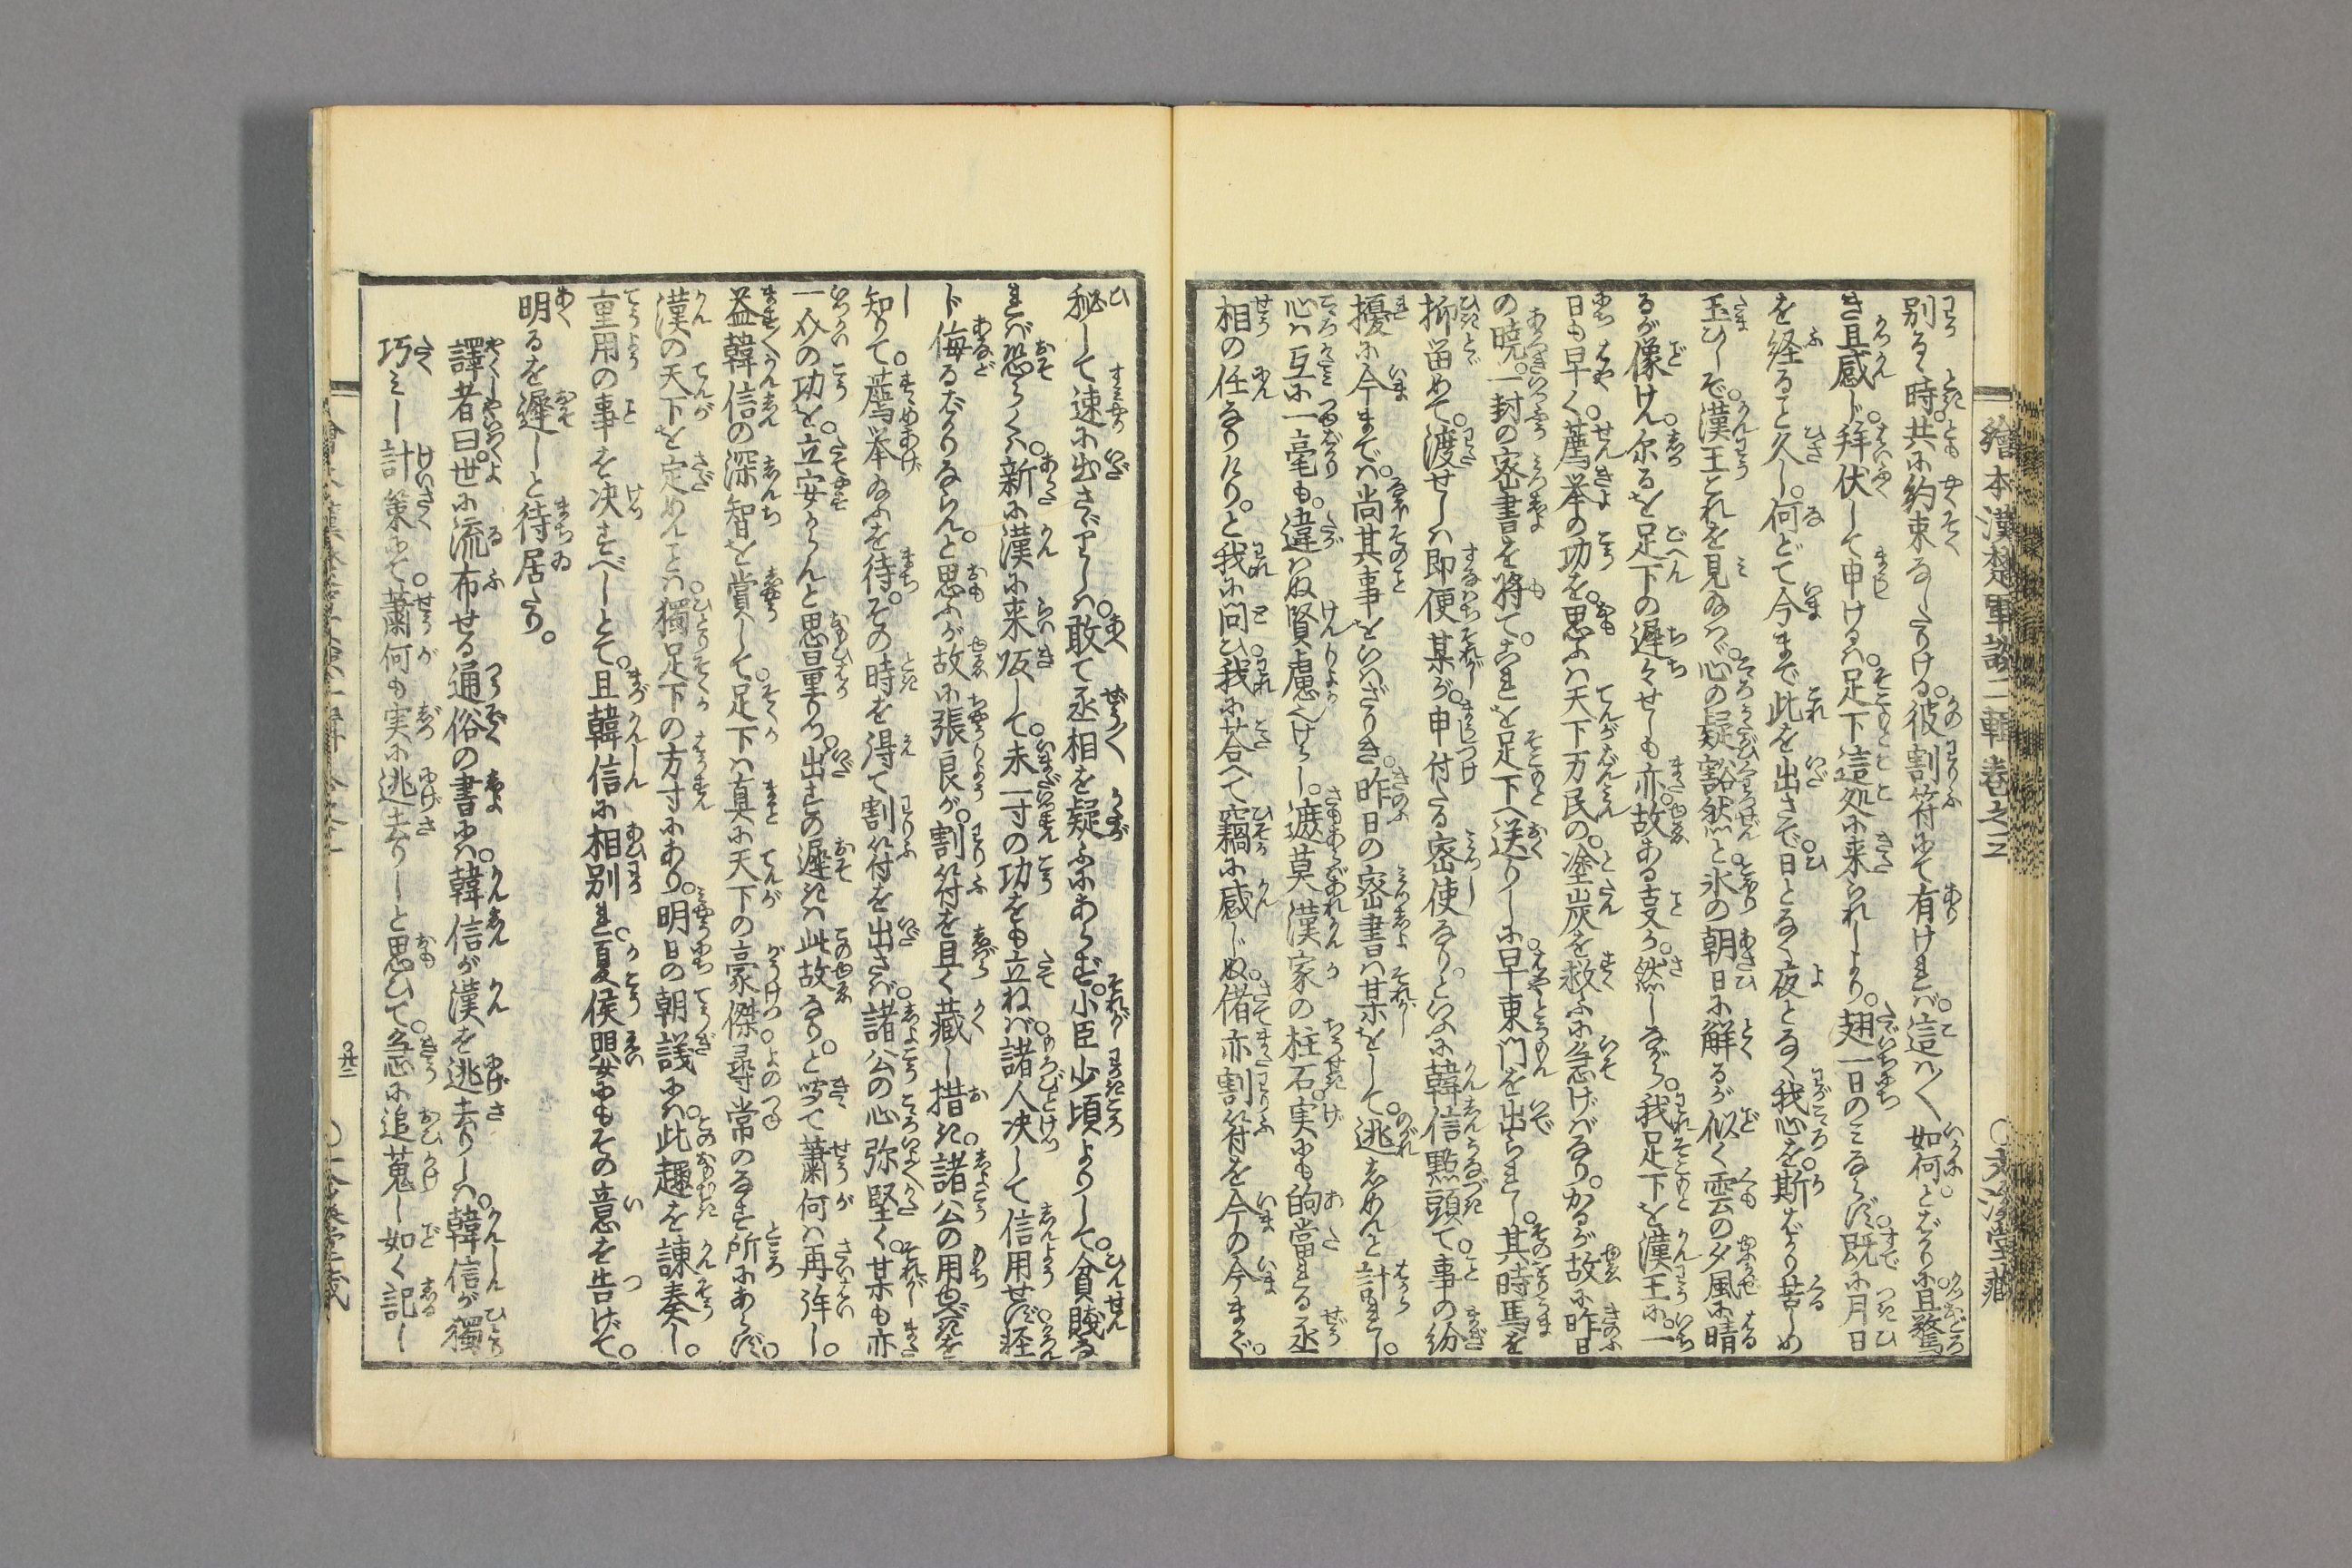 繪本漢楚軍談二輯巻之三 ○文溪堂藏
別るゝ時。共に約束なしたりける。彼割符にて有ければ。這ハ〳〵如何。とばかりに。且驚
き且感じ。拜伏して申けるハ。足下這処に来られしより。翅一日のミならず。既に月日
を経ること久し。何どて今まで此を出さで。日となく夜となく我心を。斯ばかり苦しめ
玉ひしぞ。漢王これを見玉ハヾ。心の疑ひ豁然と。氷の朝日に解るが似く雲の夕風に晴
るが像けん。尓るを足下の遅々せしも亦。故ある㕝か。然しながら。我足下を漢王に。一
日も早く。薦挙の功を。思ふハ天下万民の。塗炭を救ふに急げばなり。かるが故に昨日
の暁。一封の密書を将て。これを足下へ送りしに。早東門を出られし。其時馬を
抑留めて。渡せしハ即便某が。申付たる密使なり。といふに韓信點頭て。事の紛
擾に今までハ。尚其事をいハざりき。昨日の密書ハ某をして。逃しめんと計れし。
心ハ互に一毫も。違ハぬ賢慮へけし。遮莫漢家の柱石。実にも的當れる丞
相の任なりけり。と我に問ひ。我に荅へて竊に感じぬ。偖亦割符を今の今まで。
秘して速に出さゞりしハ。敢て丞相を疑ふにあらず。小臣少頃よりして。貧賤な
れバ恐らくハ。新に漢に来皈して。未一寸の功をも立ねバ。諸人决して信用せず。軽
ト侮るばかりならん。と思ふが故に張良が。割符を且く藏し措き。諸公の用ゐを
知りて。薦挙玉ふを待。その時を得て割符を出さバ。諸公の心弥堅く。某も亦
一㸦の功を。立安からんと思量りつ。出すの遅きハ此故なり。と听て蕭何ハ再拜し。
益韓信の深智を賞して。足下ハ真に天下の豪傑。尋常のなす所にあらず。
漢の天下を定めんこと。獨足下の方寸にあり。明日の朝議にハ。此趣を諌奏し。
重用の事を决すべしとて。且韓信に相別れ。夏侯嬰にもその意を告げて。
明るを遅しと待居たり。
譯者曰。世に流布せる通俗の書にハ。韓信が漢を逃去りしハ。韓信が獨
巧ミし計策にて。蕭何も実に逃去りしと思ひて。急に追蒐し如く記し